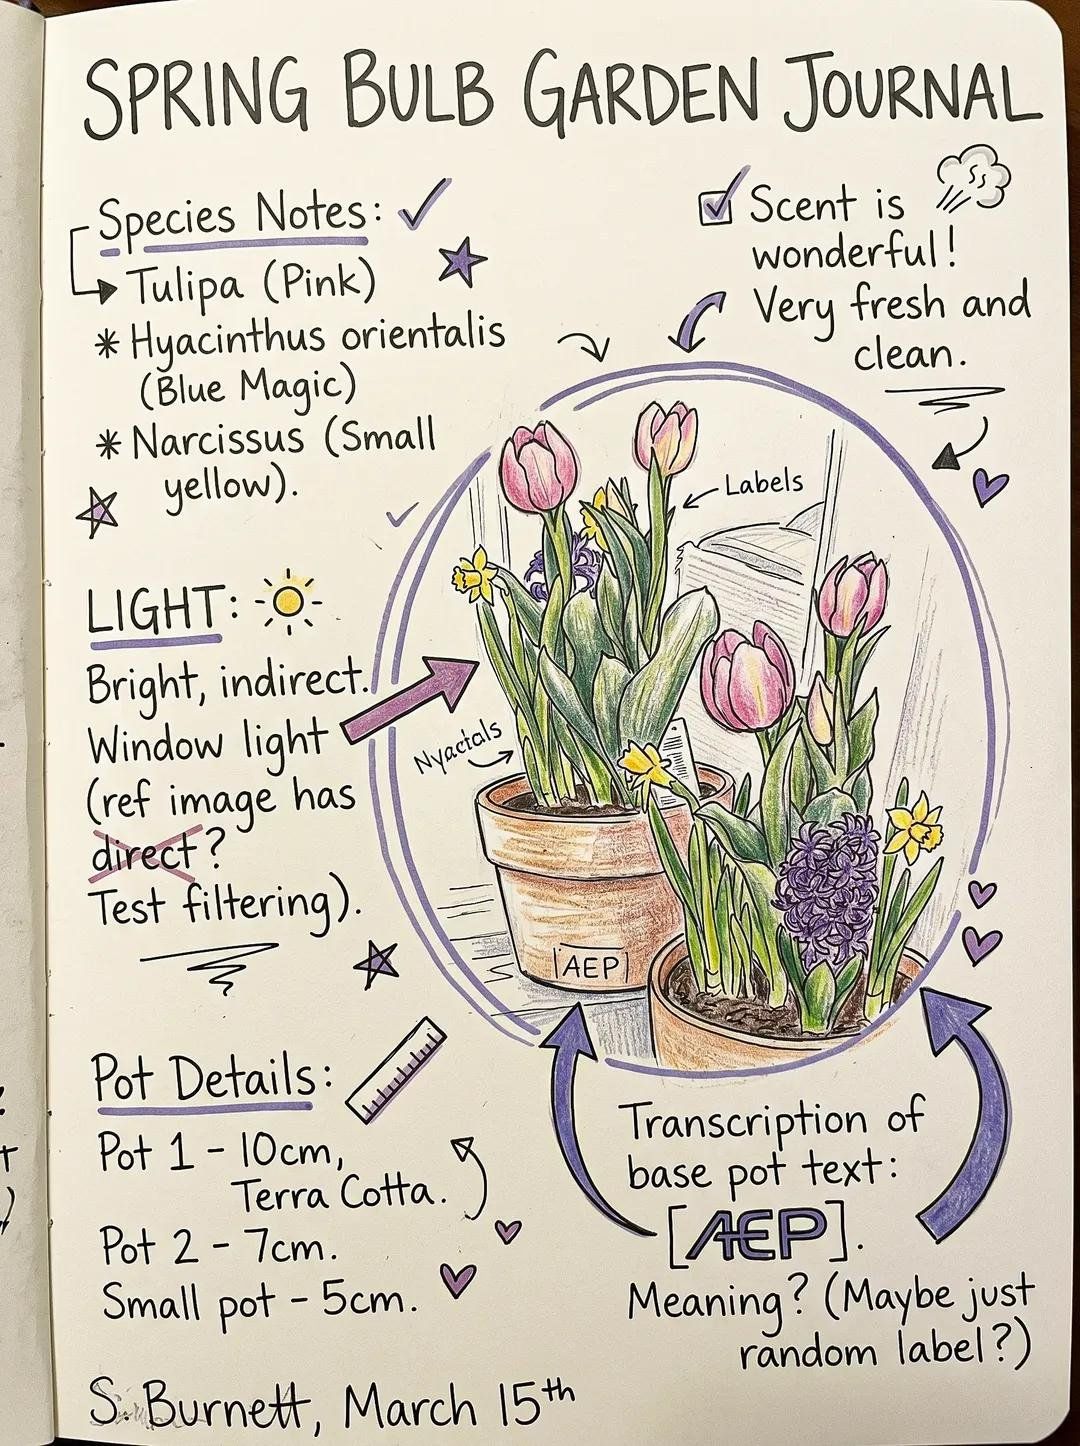 SPRING BULB GARDEN JOURNAL
Species Notes:
Tulipa (Pink)
* Hyacinthus orientalis
(Blue Magic)
* Narcissus (Small
yellow).
Scent is
wonderful!
Very fresh and
clean.
Labels
LIGHT:
Bright, indirect.
Window light
(ref image has
direct?
Test filtering).
Nyactals
[AEP]
Pot Details:
Pot 1 - 10cm,
Terra Cotta.
Pot 2 - 7cm.
Small pot - 5cm.
Transcription of
base pot text:
[AEP].
Meaning? (Maybe just
random label?)
S. Burnett, March 15th